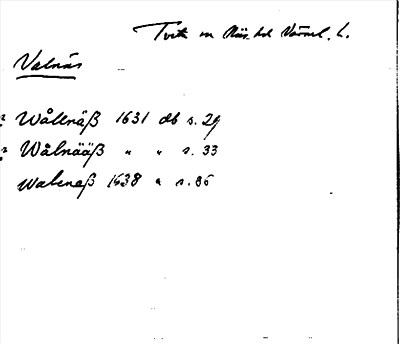 Tveta sn Näs hd Värml. l.
Valnäs
? Wållnäß 1631 db s. 29
? Wålnääß " " s. 33
Walenäß 1638 " s. 85